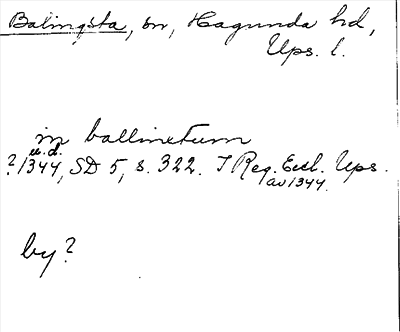 Balingsta, sn, Hagunda hd,
Ups. l.
in ballinetum
u.d.
?1344, SD 5, s. 322. I Reg. Eccl. Ups.
av 1344.
by?